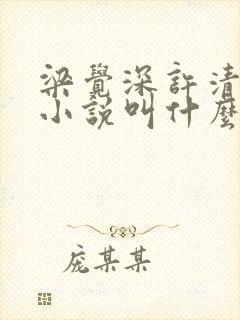 梁覺深許清
小説叫什麼
庞某某